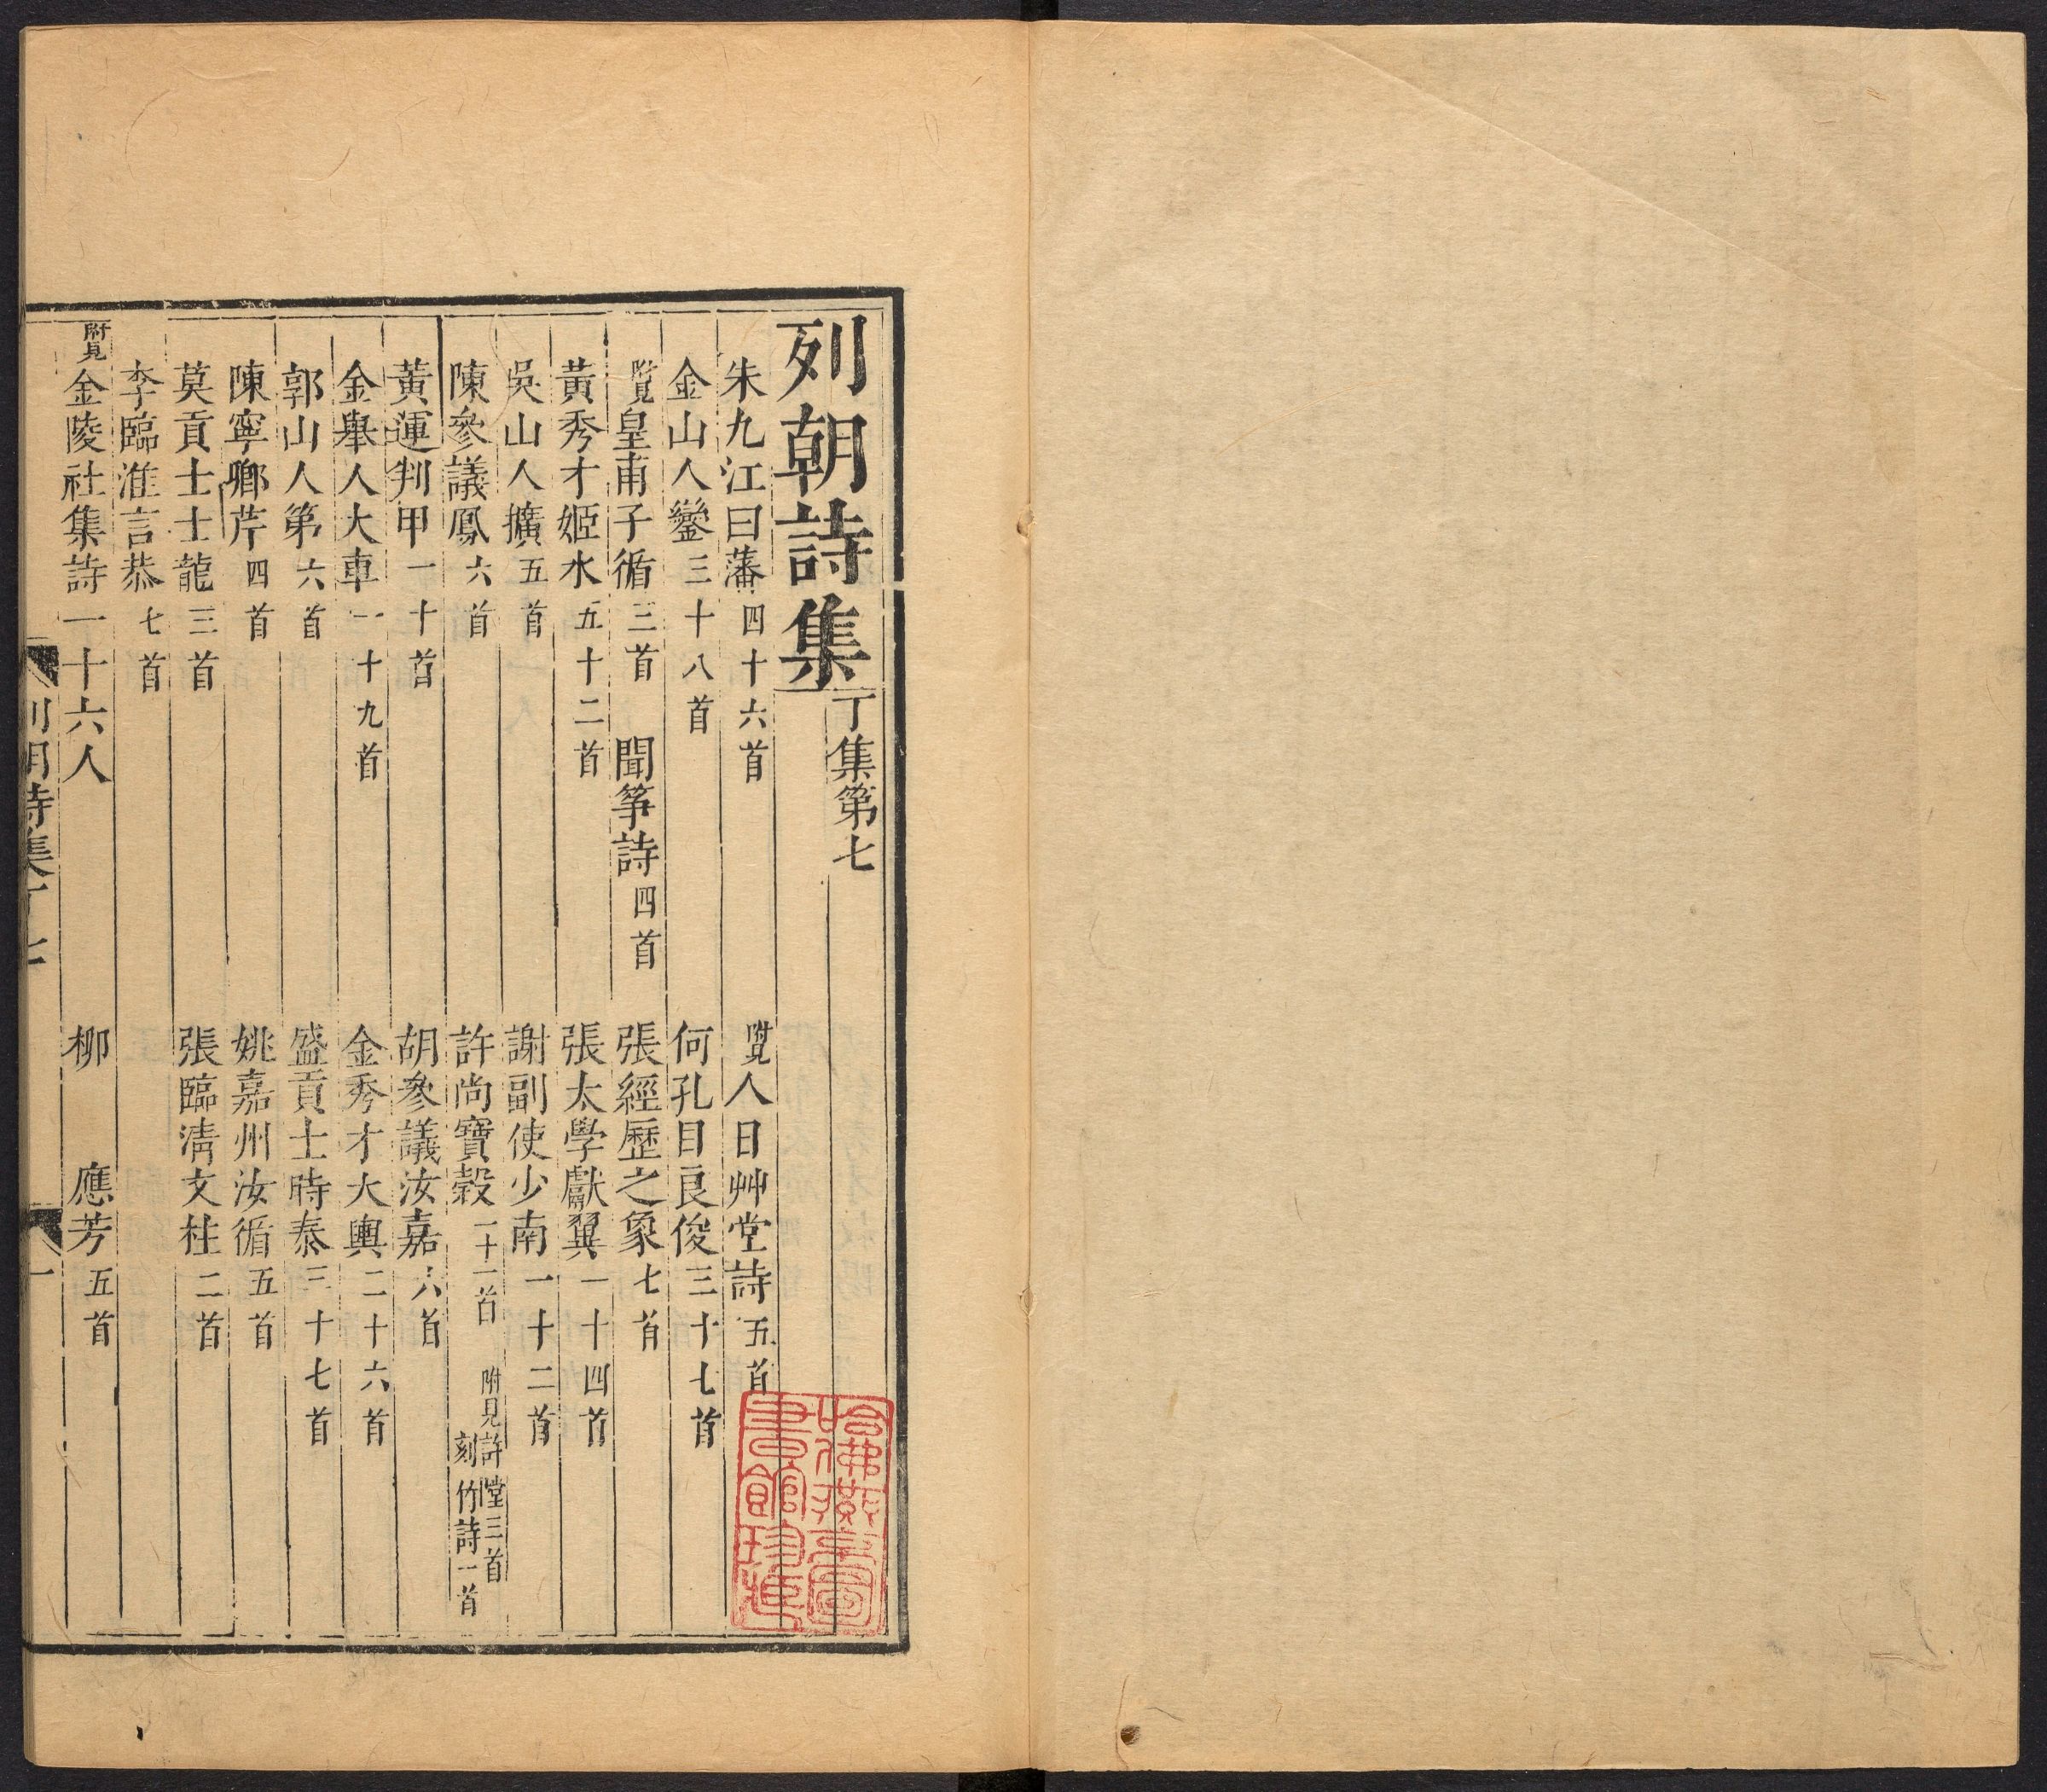 列朝詩集 丁集第七
朱九江曰藩 四十六首 附見 人日艸堂詩 五首
金山人鑾 三十八首 何孔目良俊 三十七首
附見 皇甫子循 三首 聞筝詩 四首 張經歷之象 七首
黃秀才姬水 五十二首 張太學獻翼 一十四首
吳山人擴 五首 謝副使少南 一十二首
陳參議鳳 六首 許尚寶穀 一十一首 附見許瑩三首 刻竹詩一首
黃運判甲 一十首 胡參議汝嘉 六首
金舉人大車 一十九首 金秀才大輿 二十六首
郭山人第 六首 盛貢士時泰 三十七首
陳寧鄉芹 四首 姚嘉州汝循 五首
莫貢士士龍 三首 張臨淸文柱 二首
李臨淮言恭 七首
附見 金陵社集詩一十六人 柳應芳 五首
列朝詩集丁七 一
哈佛燕京圖
書館珍藏